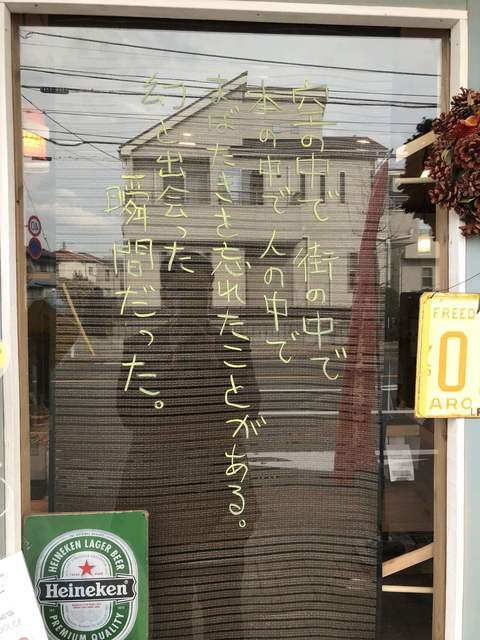 空の中で 街の中で
本の中で 人の中で
まばたきを忘れたことがある。
幻と出会った
一瞬間だった。
FREED
0
ARO
HEINEKEN LAGER BEER
Heineken
PREMIUM QUALITY